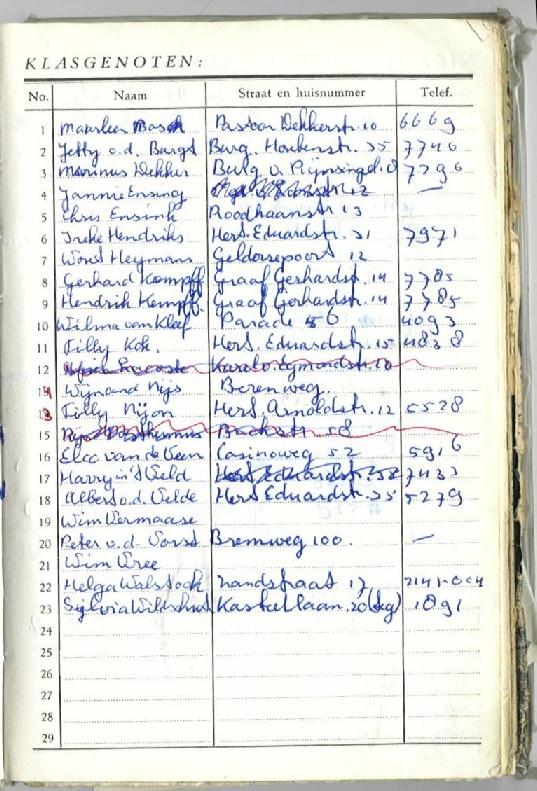 KLASGENOTEN:
No. Naam Straat en huisnummer Telef.
1 Marleen Bosch Pastoor Dekkerstr. 10 6669
2 Jetty v.d. Burgt Burg. 35 7746
3 Marinus Dekker Burg v. Rijnsingel 7296
4 Jannie Ensing 12 —
5 Chris Ensink Roodhaanstr 13
6 Ineke Hendriks Hert. Eduardstr. 31 7971
7 Wout Heymann Geldersepoort 12
8 Gerhard Kempff Graaf Gerhardstr. 14 7785
9 Hendrik Kempff Graaf Gerhardstr. 14 7785
10 Wilma van Kleef Parade 56 4093
11 Tilly Kok. Hert. Eduardstr. 15 4838
12 Karel v. Egmondstr. 10
14 Wijnand Nijs Beren weg.
13 Tilly Nijon Hert. Arnoldstr. 12 5528
15 Posthumus 58
16 Elco van de Veen Casinoweg 52 5916
17 Harry in 't Veld Hert. Eduardstr. 7433
18 Albert v.d. Velde Hert. Eduardstr. 35 5279
19 Wim Vermaase
20 Peter v.d. Vorst Bremweg 100. —
21 Wim Vree
22 Helga Walstock Zandstraat 17
23 Sylvia Kastellaan. 20 1091
24
25
26
27
28
29